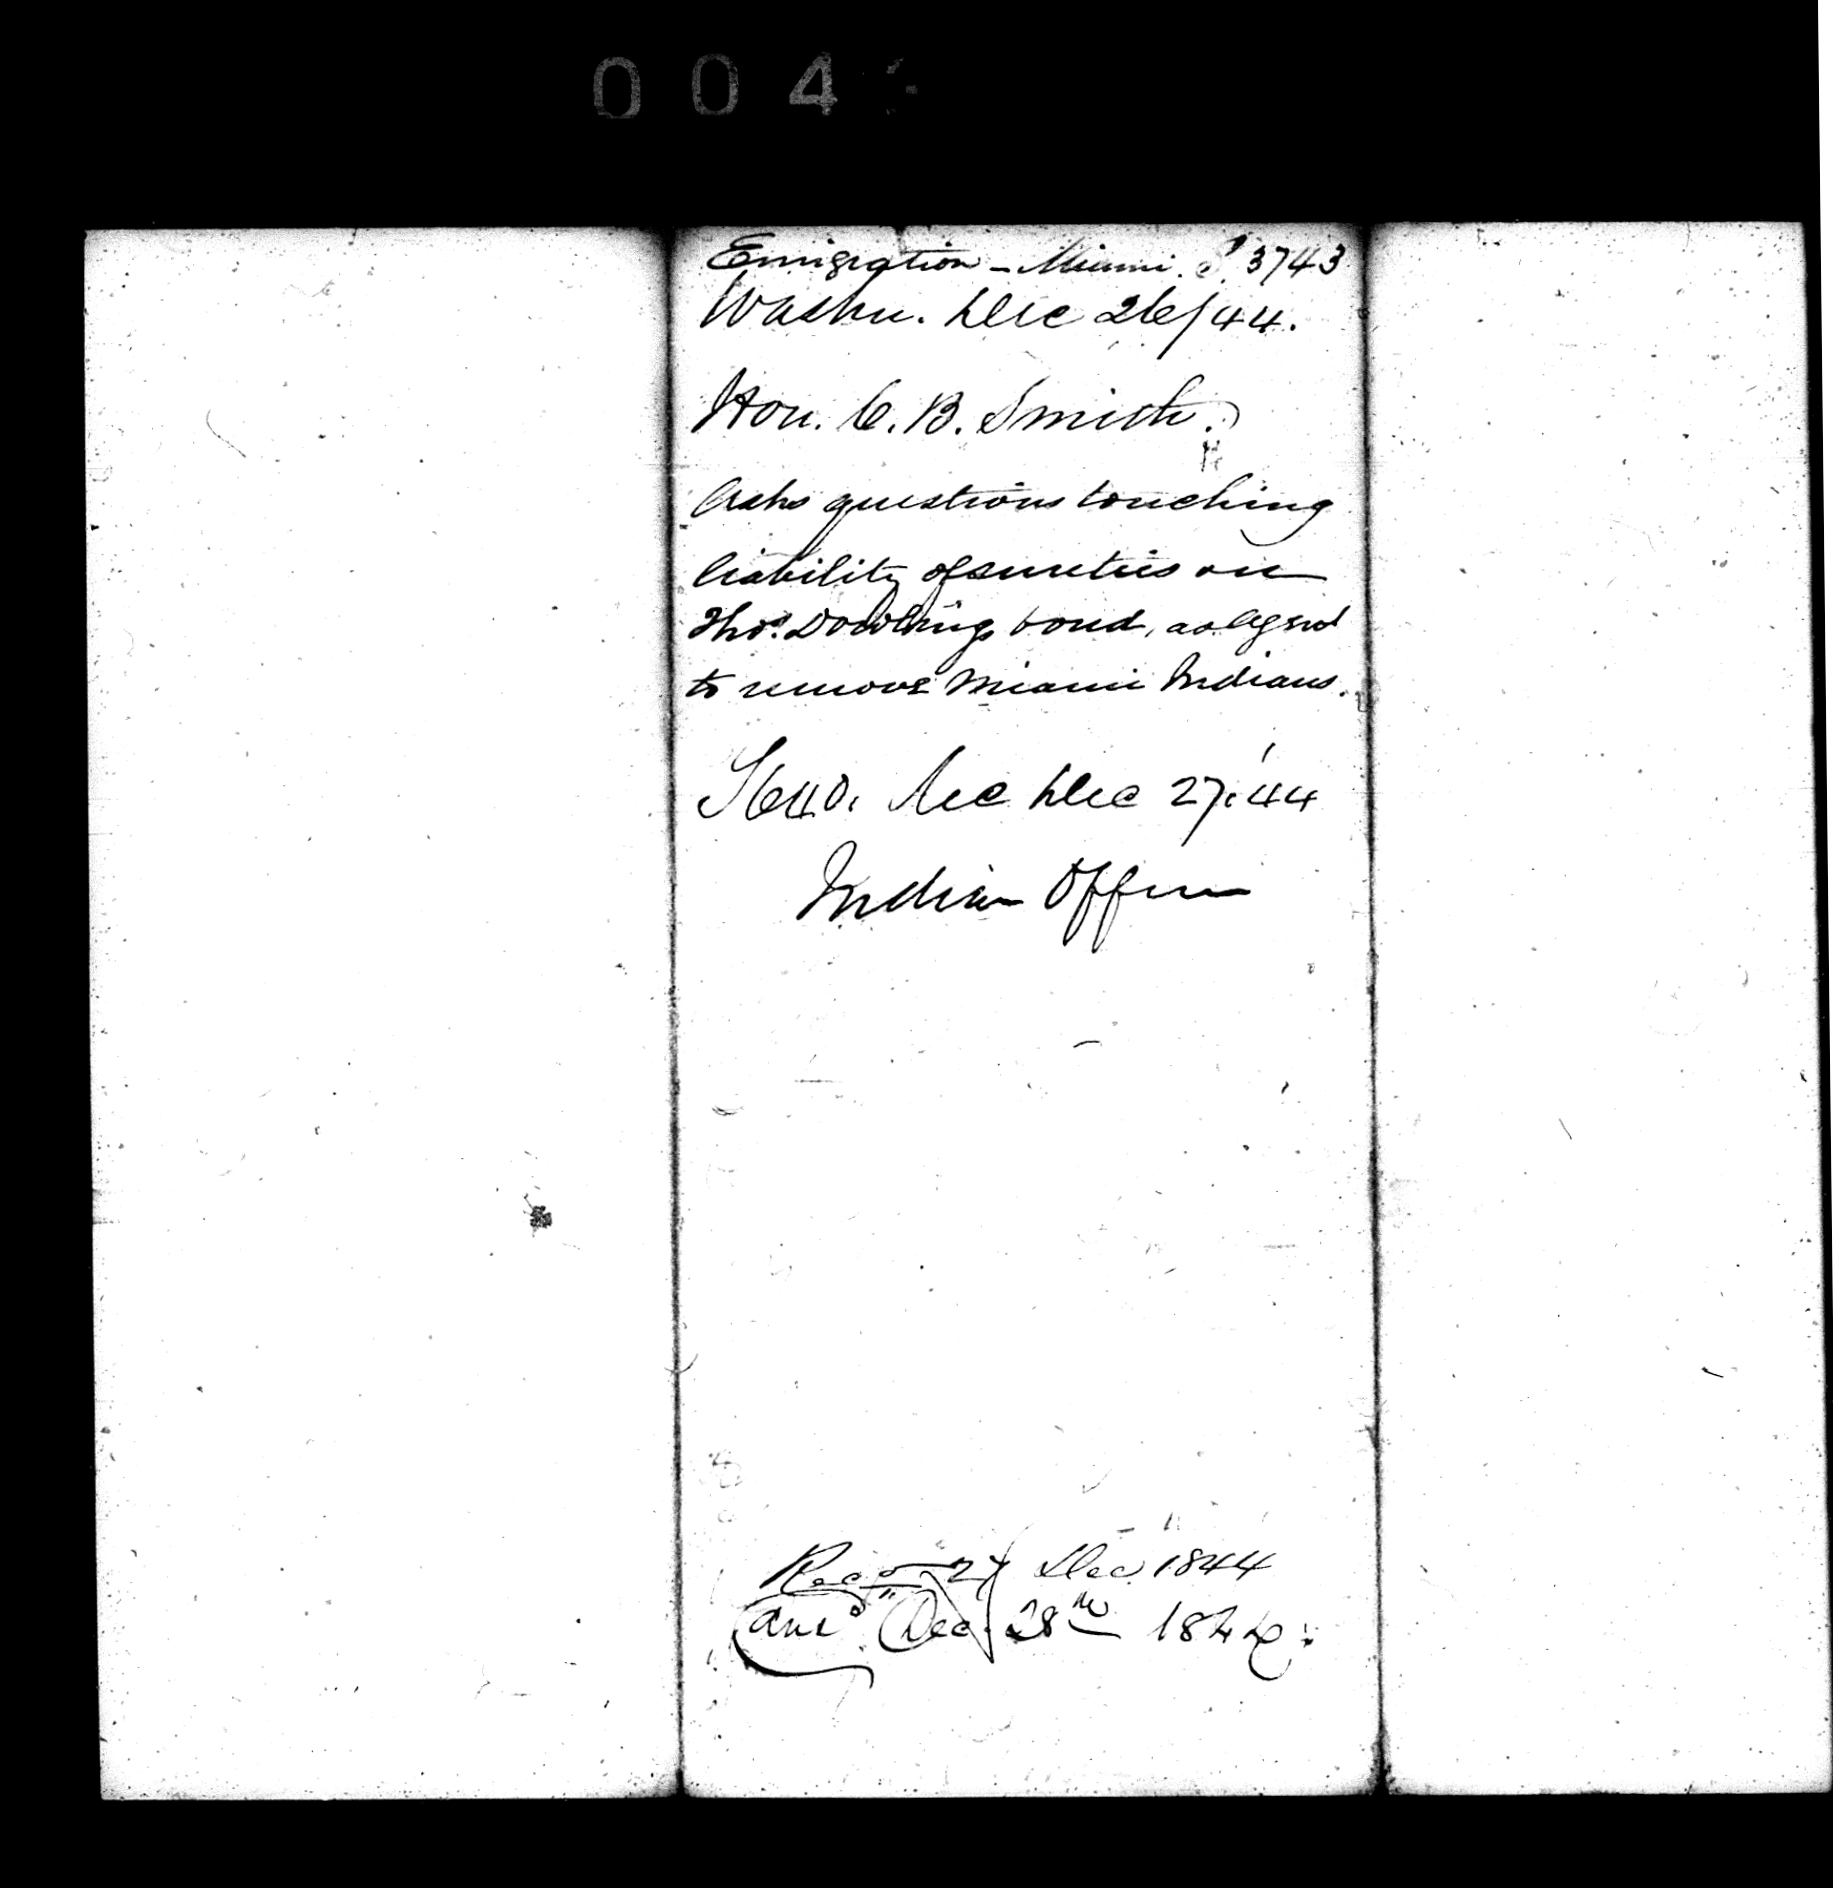 004
Emigration - Miami. S. 3743
Washn. Dec 26/44.
Hon. C. B. Smith.
Asks questions touching
liability of sureties on
Thos. Dowling's bond, as Agent
to remove Miami Indians.
S640. Rec Dec 27. '44
Indian Office
27 Dec 1844
Ansd Dec. 28th 1844.